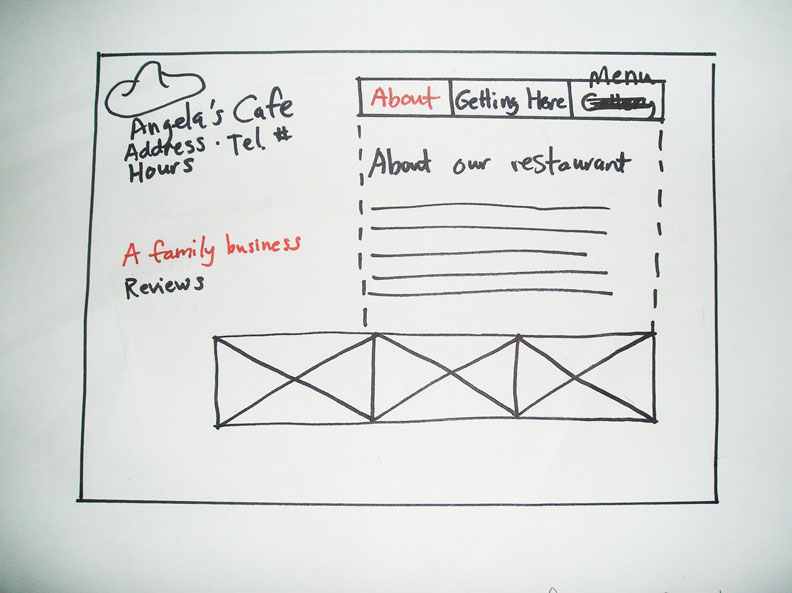 Angela's Cafe
Address · Tel. #
Hours
A family business
Reviews
About
Getting Here
Menu
About our restaurant